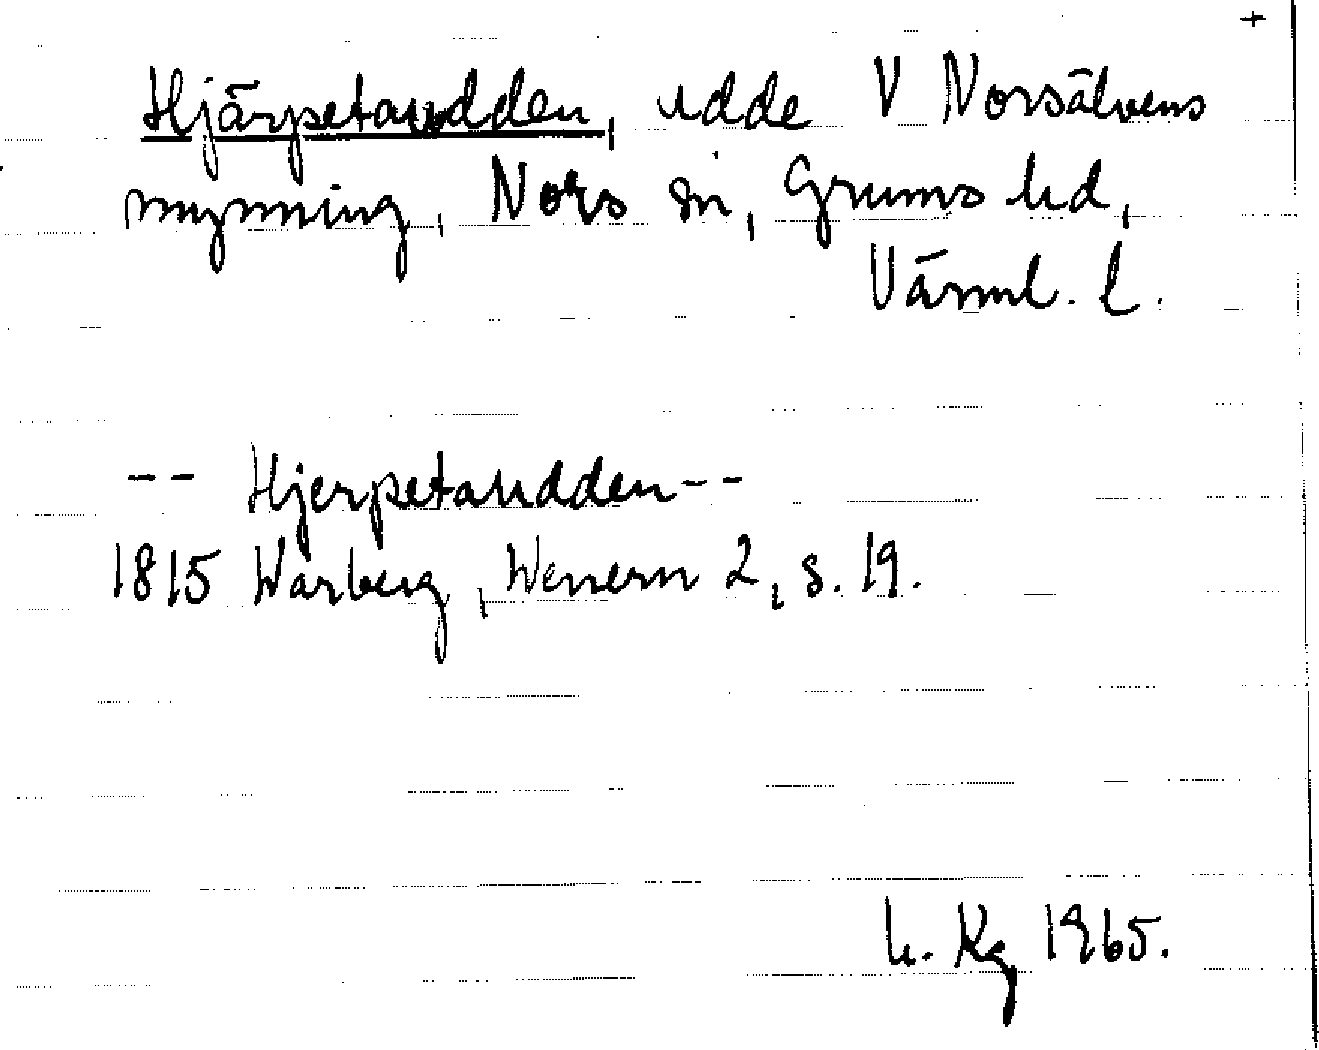 +
Hjärpetaudden, udde V Norsälvens
mynning, Nors sn, Grums hd,
Värml. l.
-- Hjerpetaudden--
1815 Warberg, Wenern 2, s. 19.
h. Kg 1965.